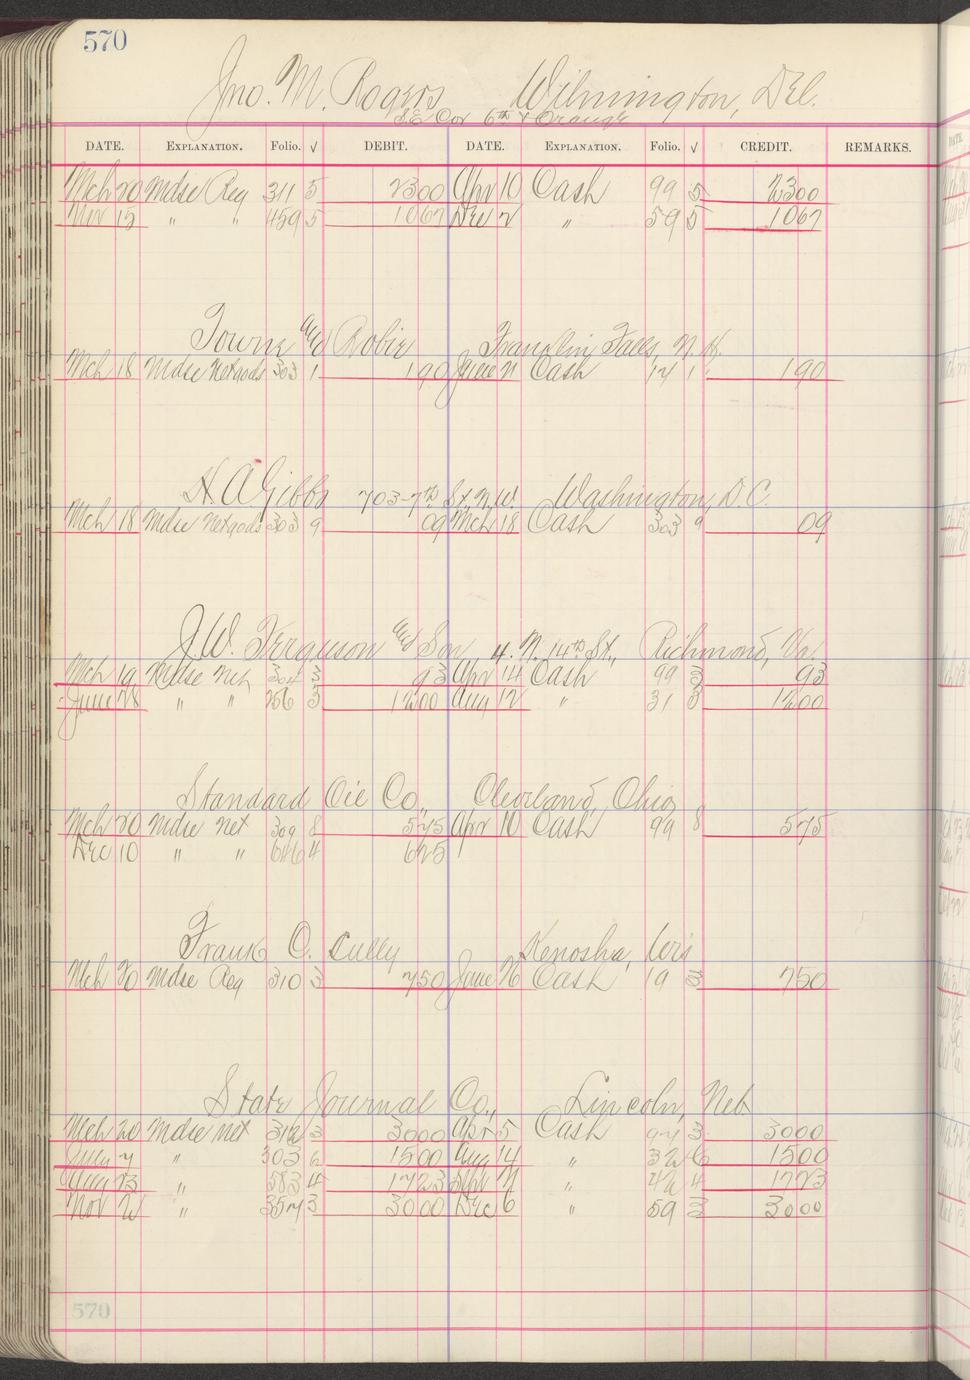 570
Jno. M. Rogers Wilmington, Del.
S.E. Cor 6th & Orange
DATE. EXPLANATION. Folio. √ DEBIT. DATE. EXPLANATION. Folio. √ CREDIT. REMARKS.
Mch 20 Mdse Reg 311 5 2300 Apr 10 Cash 99 5 2300
Nov 15 " " 459 5 1067 Dec 2 " 59 5 1067
Towne and Robie Franklin Falls, N.H.
Mch 18 Mdse Netgods 303 1 190 June Cash 1 190
H. A. Gibbs 703-7th St. N.W. Washington, D.C.
Mch 18 Mdse Netgods 303 9 09 Mch 18 Cash 303 9 09
J. W. Ferguson and Son 4. N. 14th St., Richmond, Va.
Mch 19 Mdse Net 304 3 93 Apr 14 Cash 99 3 93
June 28 " " 256 3 1200 Aug 12 " 31 3 1200
Standard Oil Co., Cleveland, Ohio
Mch 20 Mdse net 309 8 575 Apr 10 Cash 99 8 575
Dec 10 " " 4 625
Frank C. Cully Kenosha, Wis
Mch 20 Mdse Reg 310 3 750 June Cash 19 3 750
State Journal Co., Lincoln, Neb
Mch 20 Mdse net 312 3 3000 Apr 5 Cash 3 3000
July 7 " 303 6 1500 Aug 14 " 32 6 1500
Aug 23 " 583 4 1723 " 42 4 1723
Nov 2 " 357 3 3000 Dec 6 " 59 3 3000
570